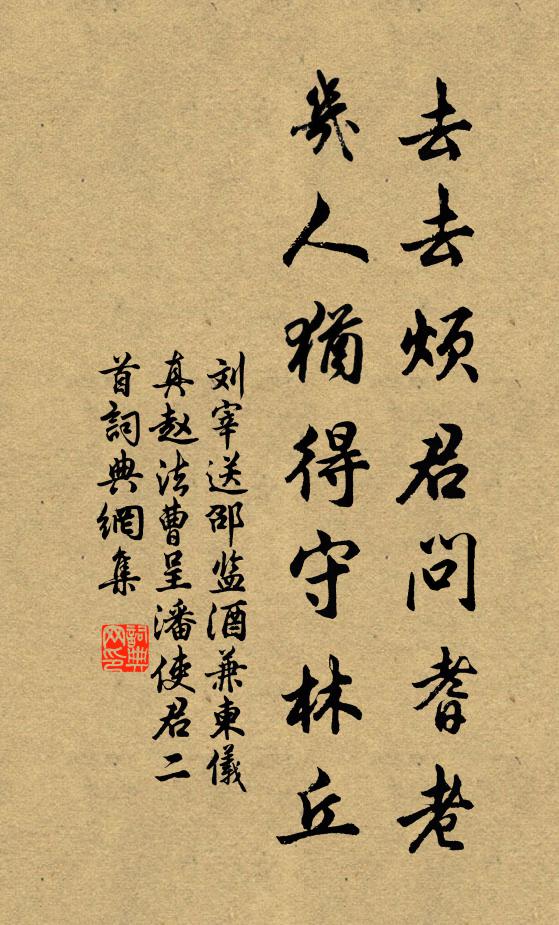 去去烦君问耆老
几人犹得守林丘
刘宰送邵监酒兼柬仪
真赵法曹呈潘使君二
首词典网集
词典网印